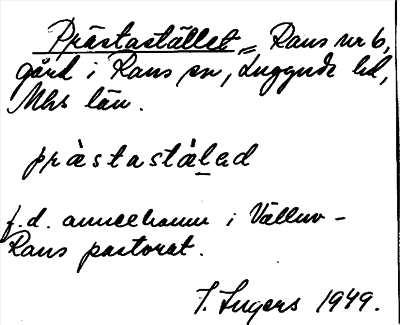 Prästastället = Rans nr 6,
gård i Rans sn, Luggude hd,
Mhs län.
prästastäled
f.d. annexhemm i Välluv-
Rans pastorat.
I. Ingers 1949.